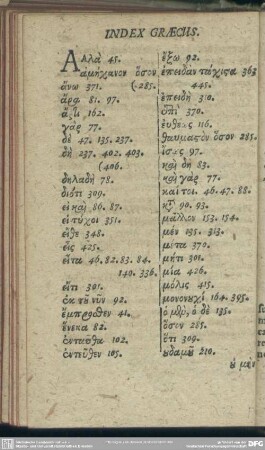 INDEX GRÆCUS.
Ἀλλὰ 45.
ἀμήχανον ὅσον
(285.
ἄνω 371.
ἆρα 81. 97.
ἄρτι 162.
γὰρ 77.
δὲ 47. 135. 237.
δὴ 237. 402. 403.
(406.
δηλαδὴ 78.
διότι 309.
εἰ καὶ 86. 87.
εἰ τύχοι 351.
εἴθε 348.
εἰς 425.
εἶτα 46. 82. 83. 84.
140. 336.
εἴτι 301.
ἐκ τοῦ νῦν 92.
ἔμπροσθεν 41.
ἕνεκα 82.
ἐνταῦθα 102.
ἐντεῦθεν 105.
ἔξω 92.
ἐπειδὰν τάχιστα 363
445.
ἐπειδὴ 310.
ἐπὶ 370.
εὐθέως 116.
θαυμαστὸν ὅσον 285.
ἴσως 97.
καὶ δὴ 83.
καὶ γὰρ 77.
καίτοι 46. 47. 88.
κἂν 90. 93.
μᾶλλον 153. 154.
μὲν 135. 313.
μετὰ 370.
μήτι 301.
μία 426.
μόλις 415.
μονονουχὶ 164. 395.
ὁ μὲν, ὁ δὲ 135.
ὅσον 285.
ὅτι 309.
οὐδαμοῦ 210.
οὐ μὲν